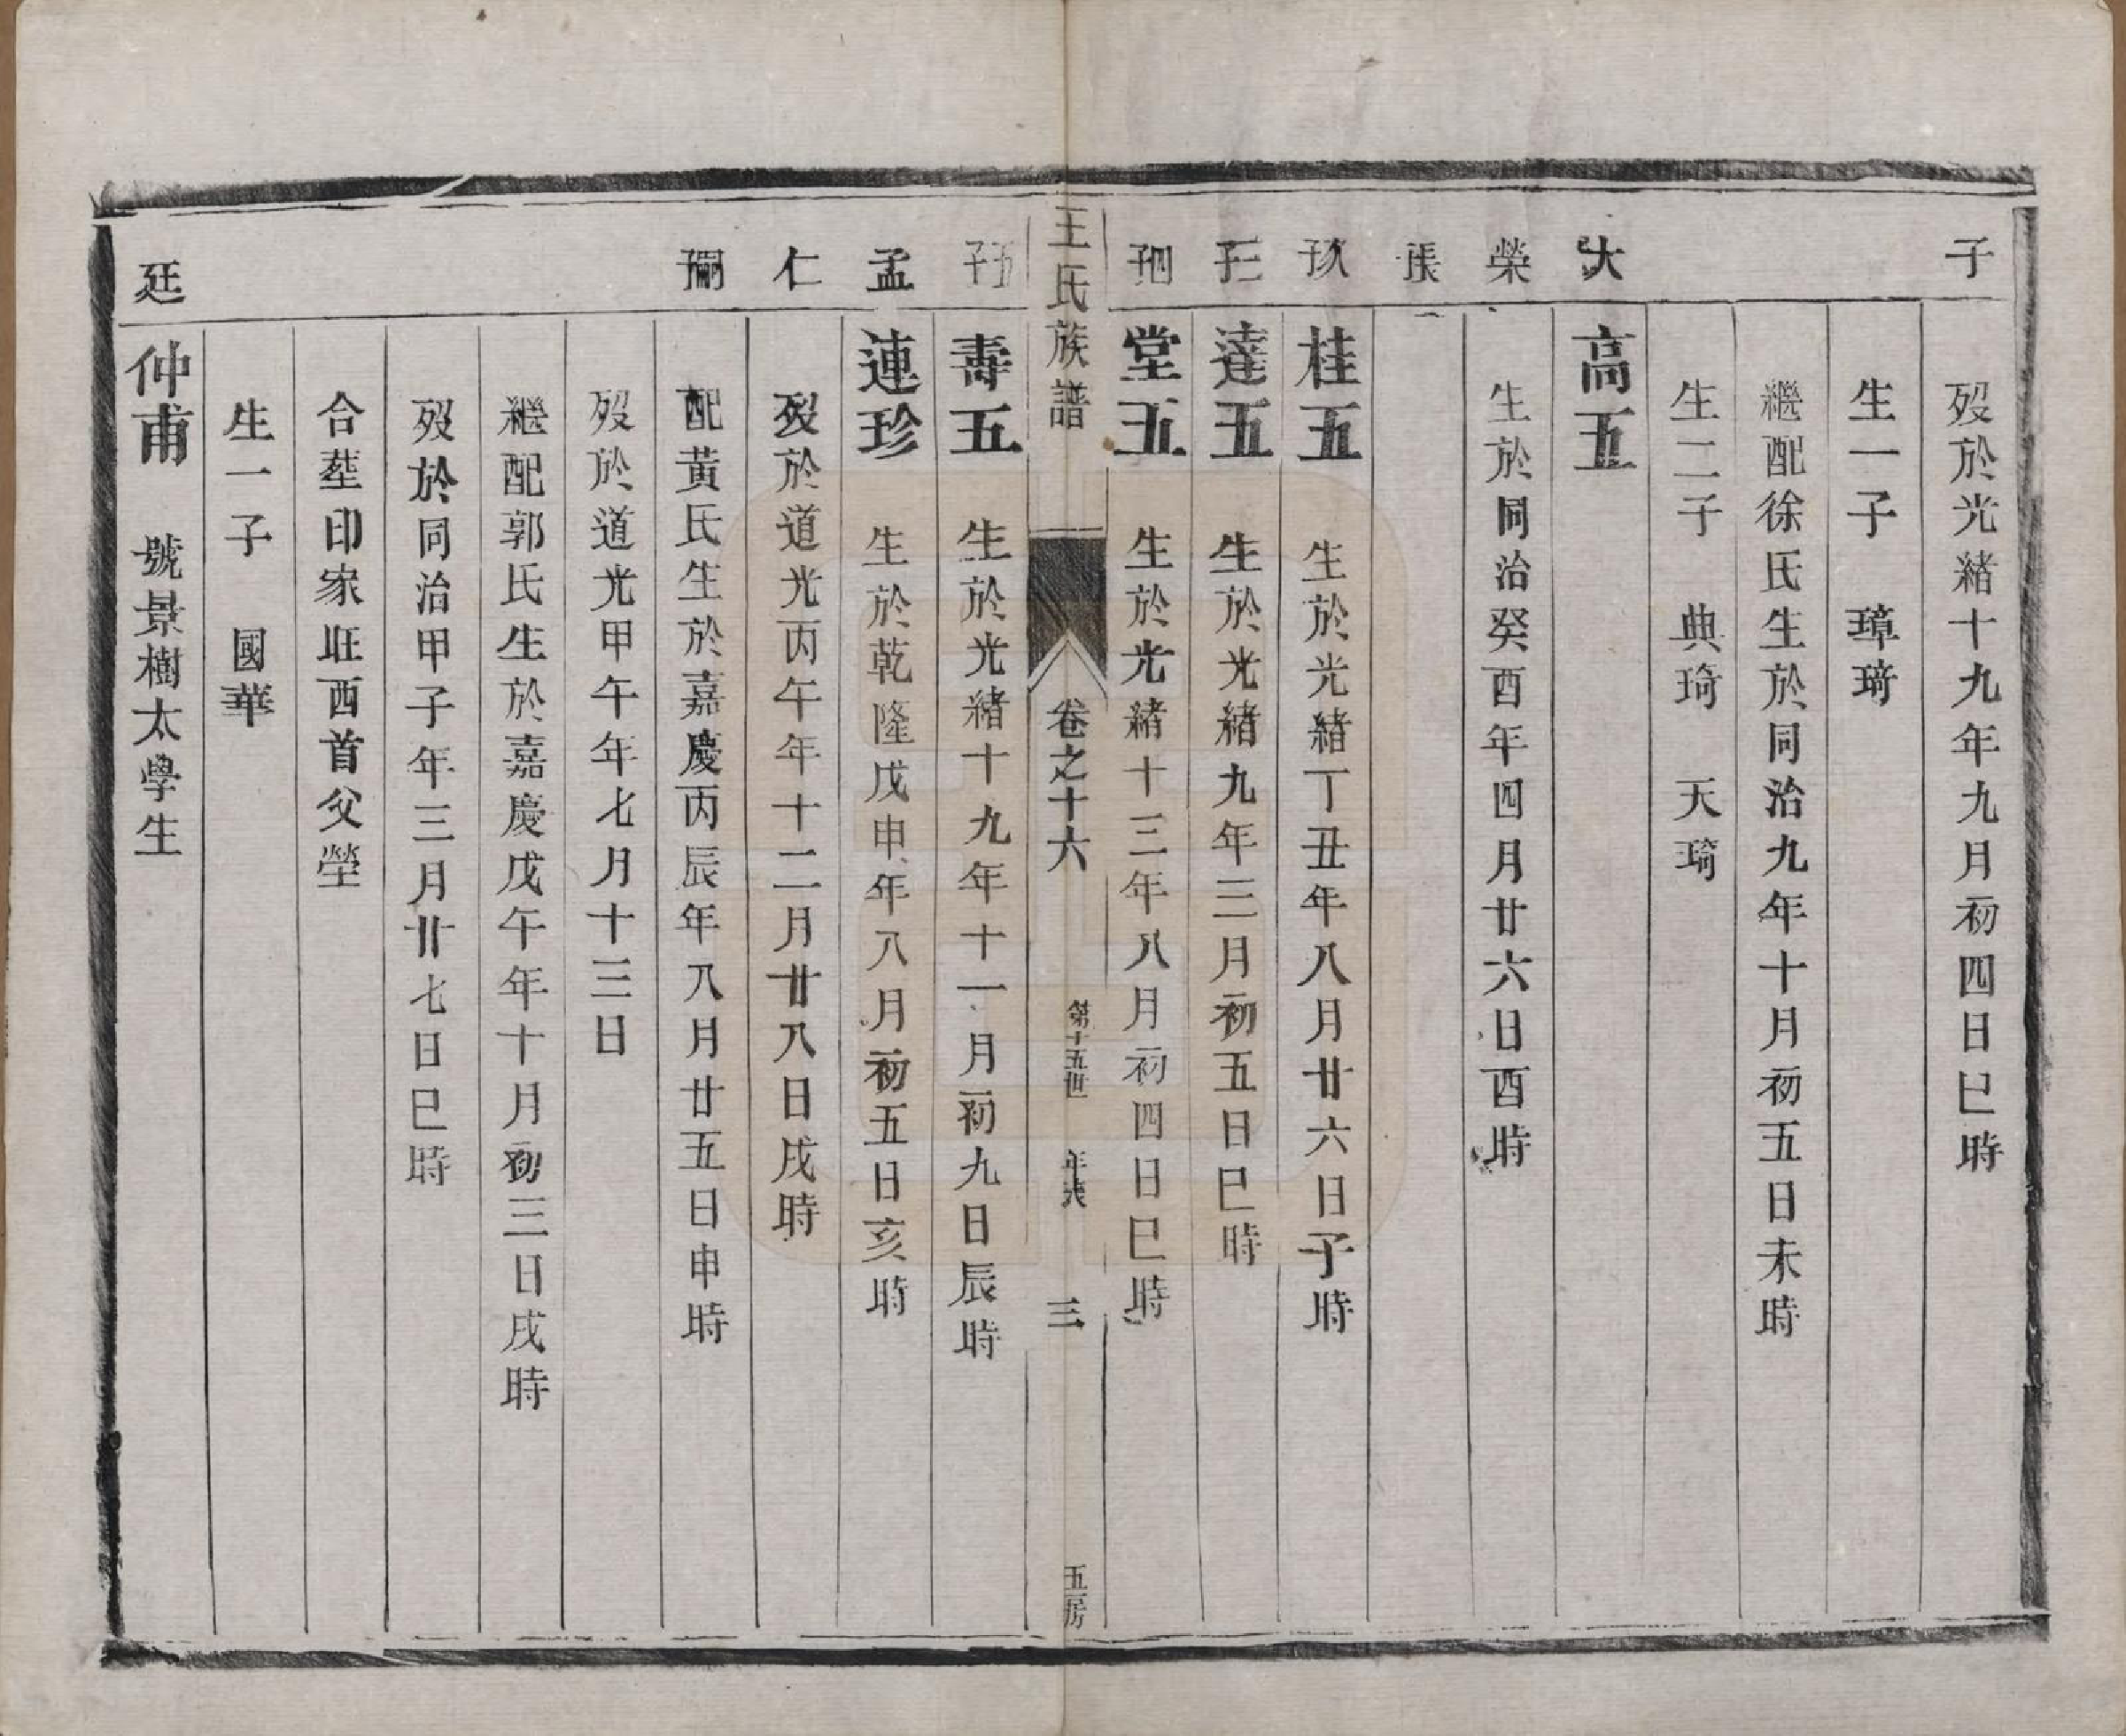 子
歿於光緒十九年九月初四日巳時
生一子　璋琦
繼配徐氏生於同治九年十月初五日未時
生二子　典琦　天琦
大
高五
榮
生於同治癸酉年四月廿六日酉時
長子
玖子
桂五　生於光緒丁丑年八月廿六日子時
三子
達五　生於光緒九年三月初五日巳時
四子
堂五　生於光緒十三年八月初四日巳時
王氏族譜　卷之十六　第十五世　三　五房
五子
壽五　生於光緒十九年十一月初九日辰時
孟
連珍　生於乾隆戊申年八月初五日亥時
仁
歿於道光丙午年十二月廿八日戌時
嗣子
配黃氏生於嘉慶丙辰年八月廿五日申時
歿於道光甲午年七月十三日
繼配郭氏生於嘉慶戊午年十月初三日戌時
歿於同治甲子年三月廿七日巳時
合塟印家㘴西首父塋
生一子　國華
廷
仲甫　號景樹太學生